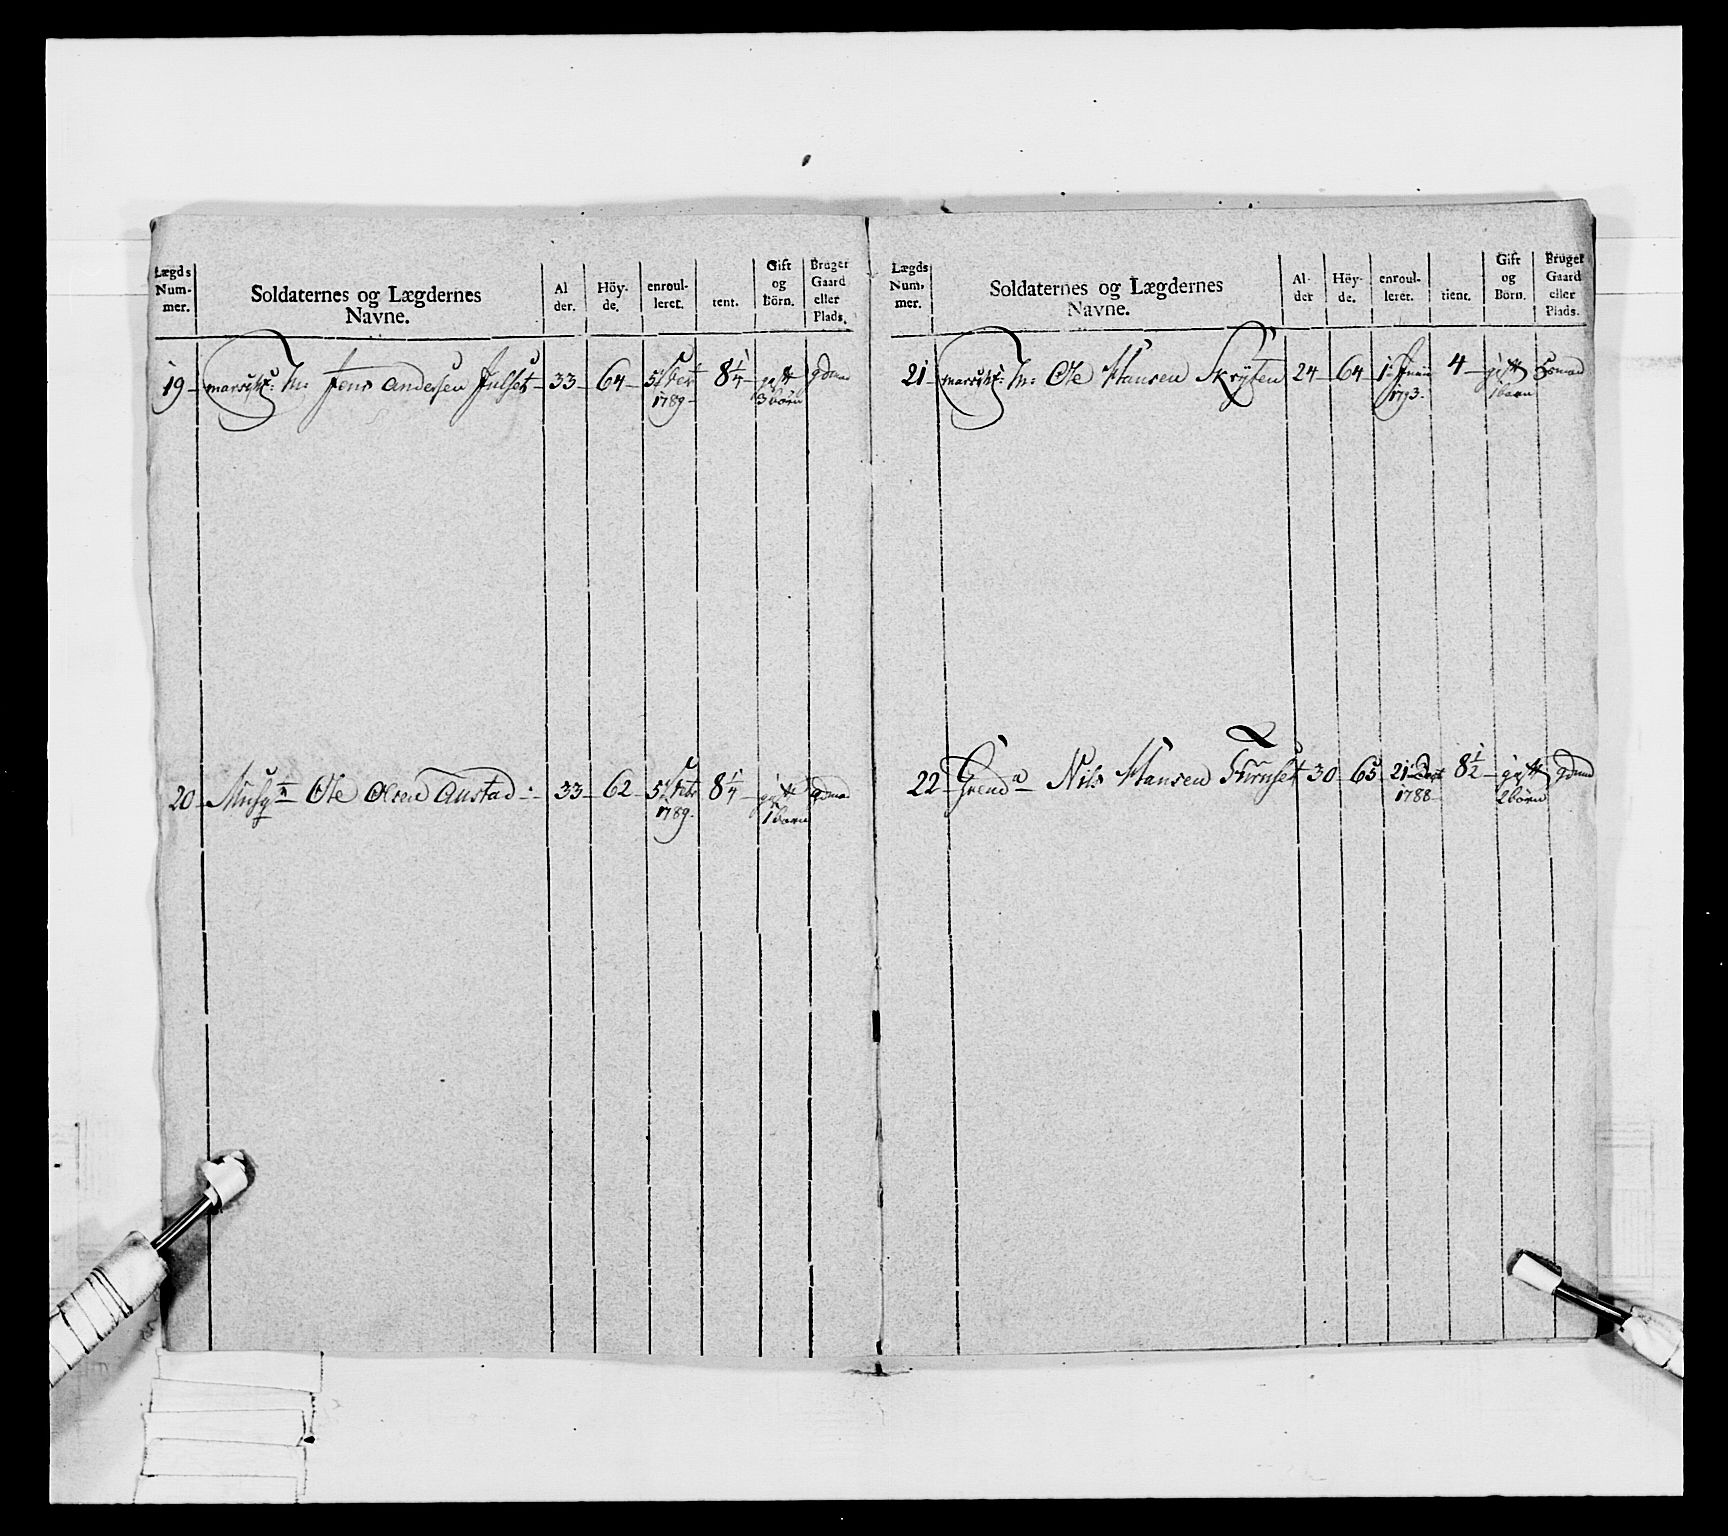 Lægds Num- mer.
Soldaternes og Lægdernes Navne.
Al der.
Höy- de.
enroul- leret.
tent.
Gift og Börn.
Bruger Gaard eller Plads.
19 Jens Andersen Julset 33 64 1789 8 1/4 gift 3 börn gdmand
20 Musq Ole Olsen Austad 33 62 1789 8 1/4 gift 1 barn
Lægds Num, mer.
Soldaternes og Lægdernes Navne.
Al- der
Höy- de.
enroul- leret.
tient.
Gift og Börn.
Bruger Gaard eller Plads.
21 Ole Hansen Skrÿten 24 64 1 Junii 1793 4 gift 1 barn
22 Grend Nils Hansen 30 65 21 1788 8 1/2 gift 2 börn